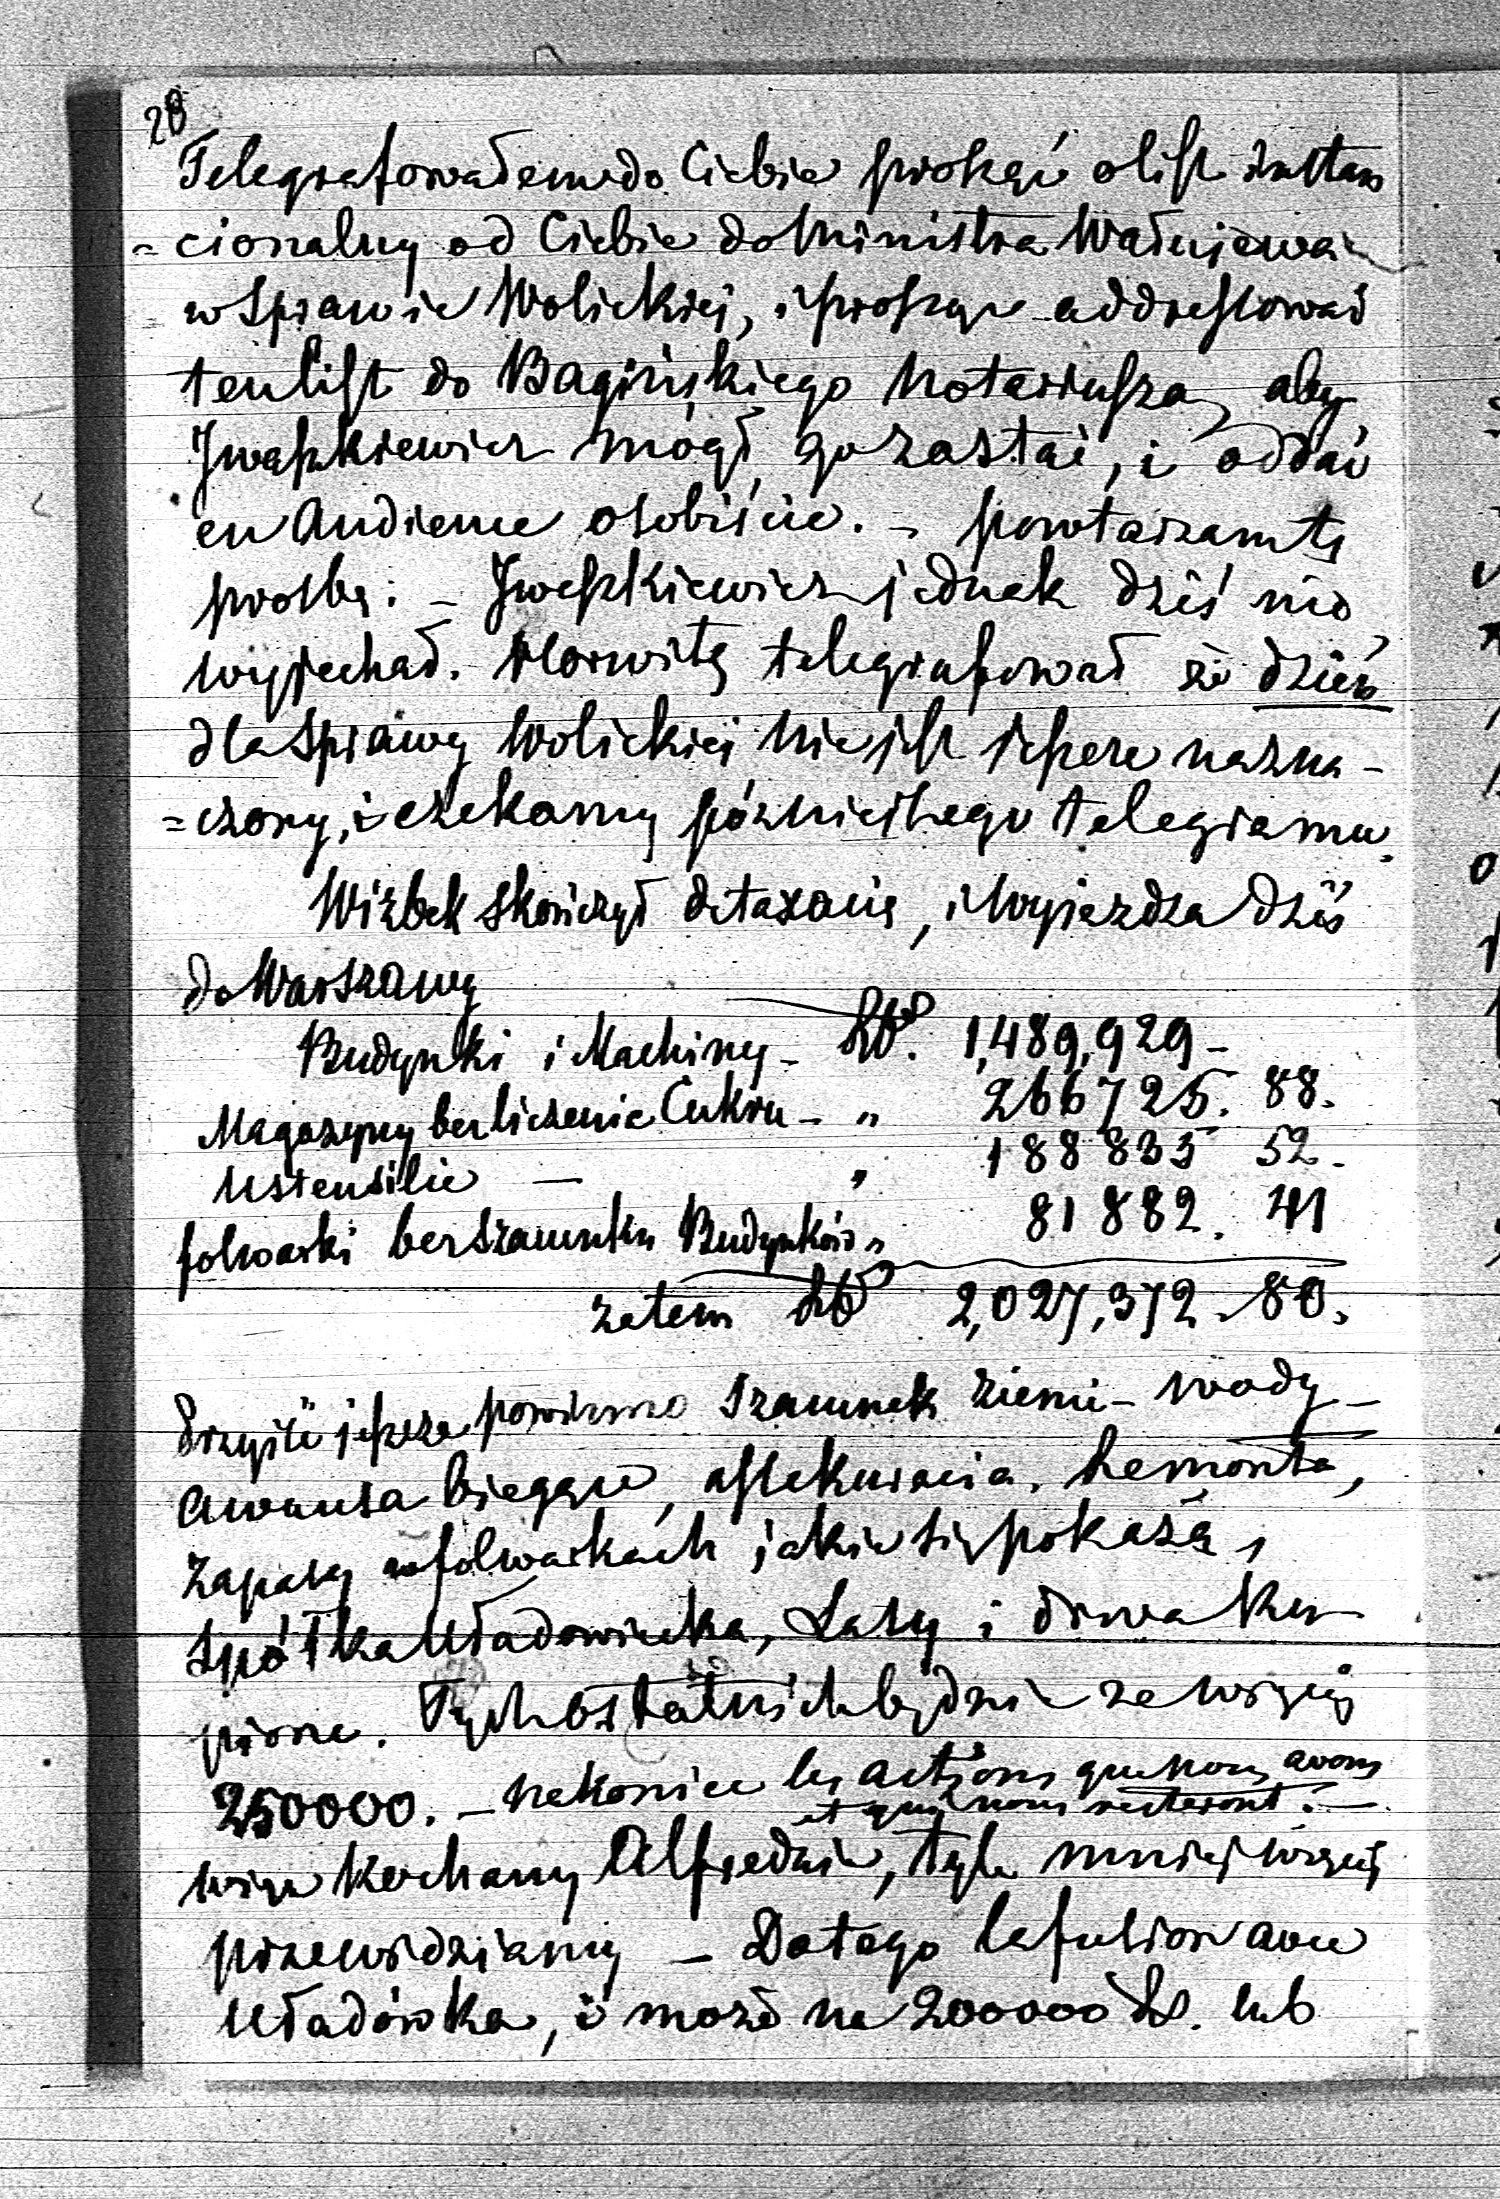 28
Telegrafowałem do Ciebie prosząc o list instan
=cionalny od Ciebie do Ministra Wałujewa
w sprawie Wolickiej, i proszę addressować
ten list do Bagińskiego Notariusza, aby
Iwaszkiewicz mógł go zastać, i oddać
en Audience osobiście. – powtarzam tę
prośbę: – Iwaszkiewicz jednak dziś nie
wyjechał. Horwitz telegrafował że dzień
dla sprawy Wolickiej nie jest jeszcze nazna-
=czony, i czekamy późniejszego telegramu.
Wizbek skończył detaxacię, i wyjeżdża dziś
do Warszawy
Budynki i Machiny – Rb. 1,489,929 –
Magazyny bez liczenia Cukru – „ 266725. 88.
Ustensilie — „ 188835 52.
folwarki bez szacunku Budynków „ 81882. 41
zatem Rb 2,027,372. 80.
Przyjść jeszcze powinno szacunek ziemi – wody –
awansa bieżące, assekuracia, Remonta,
Zapasy w folwarkach jakie się pokażą,
Spółka Uładowiecka, Lasy i drwa ku-
pione. Tych ostatnich będzie ze więcej
250000. – nakoniec les actions que nous avons
et qui nous resteront. —
więc kochany Alfredzie, tyle mniej więcej
przewidziany – Do tego la fusion avec
Uładówka, i może na 200000 Rs. lub